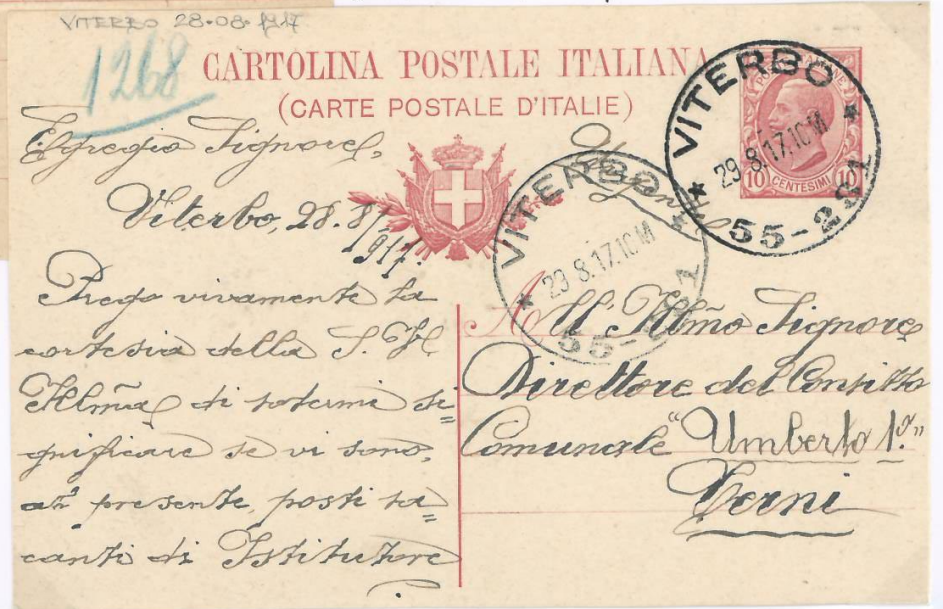 VITERBO 28.08.1917
1268
CARTOLINA POSTALE ITALIANA
(CARTE POSTALE D'ITALIE)
POSTE ITALIANE
10 CENTESIMI 10
VITERBO
29.8.17.10M
55-281
VITERBO
29.8.17.10M
55-281
Urgente
Egregio Signore,
Viterbo, 28.8/1917.
Prego vivamente la
cortesia della S. V.
Illma di potermi si=
gnificare se vi sono,
al presente, posti va=
canti di Istitutore
All' Illmo Signore
Direttore del Convitto
Comunale "Umberto 1º."
Terni